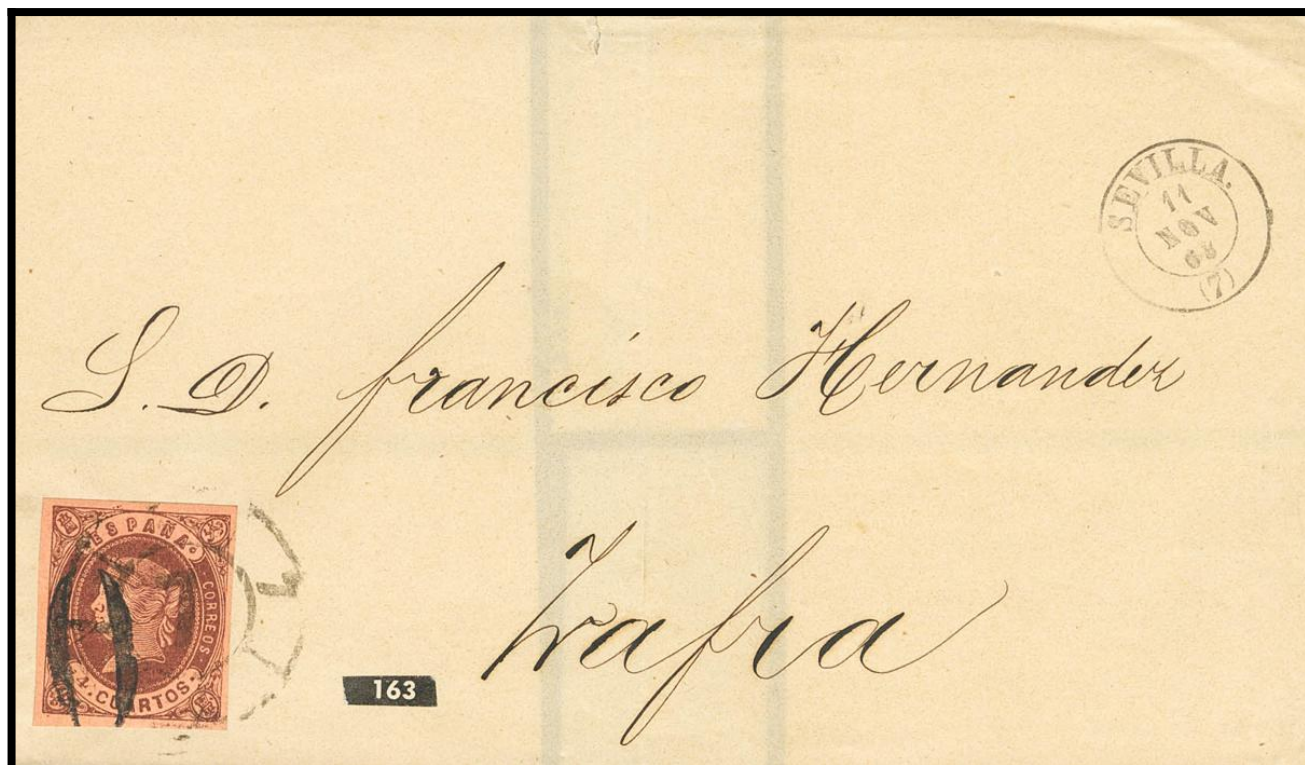 SEVILLA.
11
NOV
63
(7)
S. D. francisco Hernandez
ESPAÑA
CORREOS
4. CUARTOS.
163
Zafra